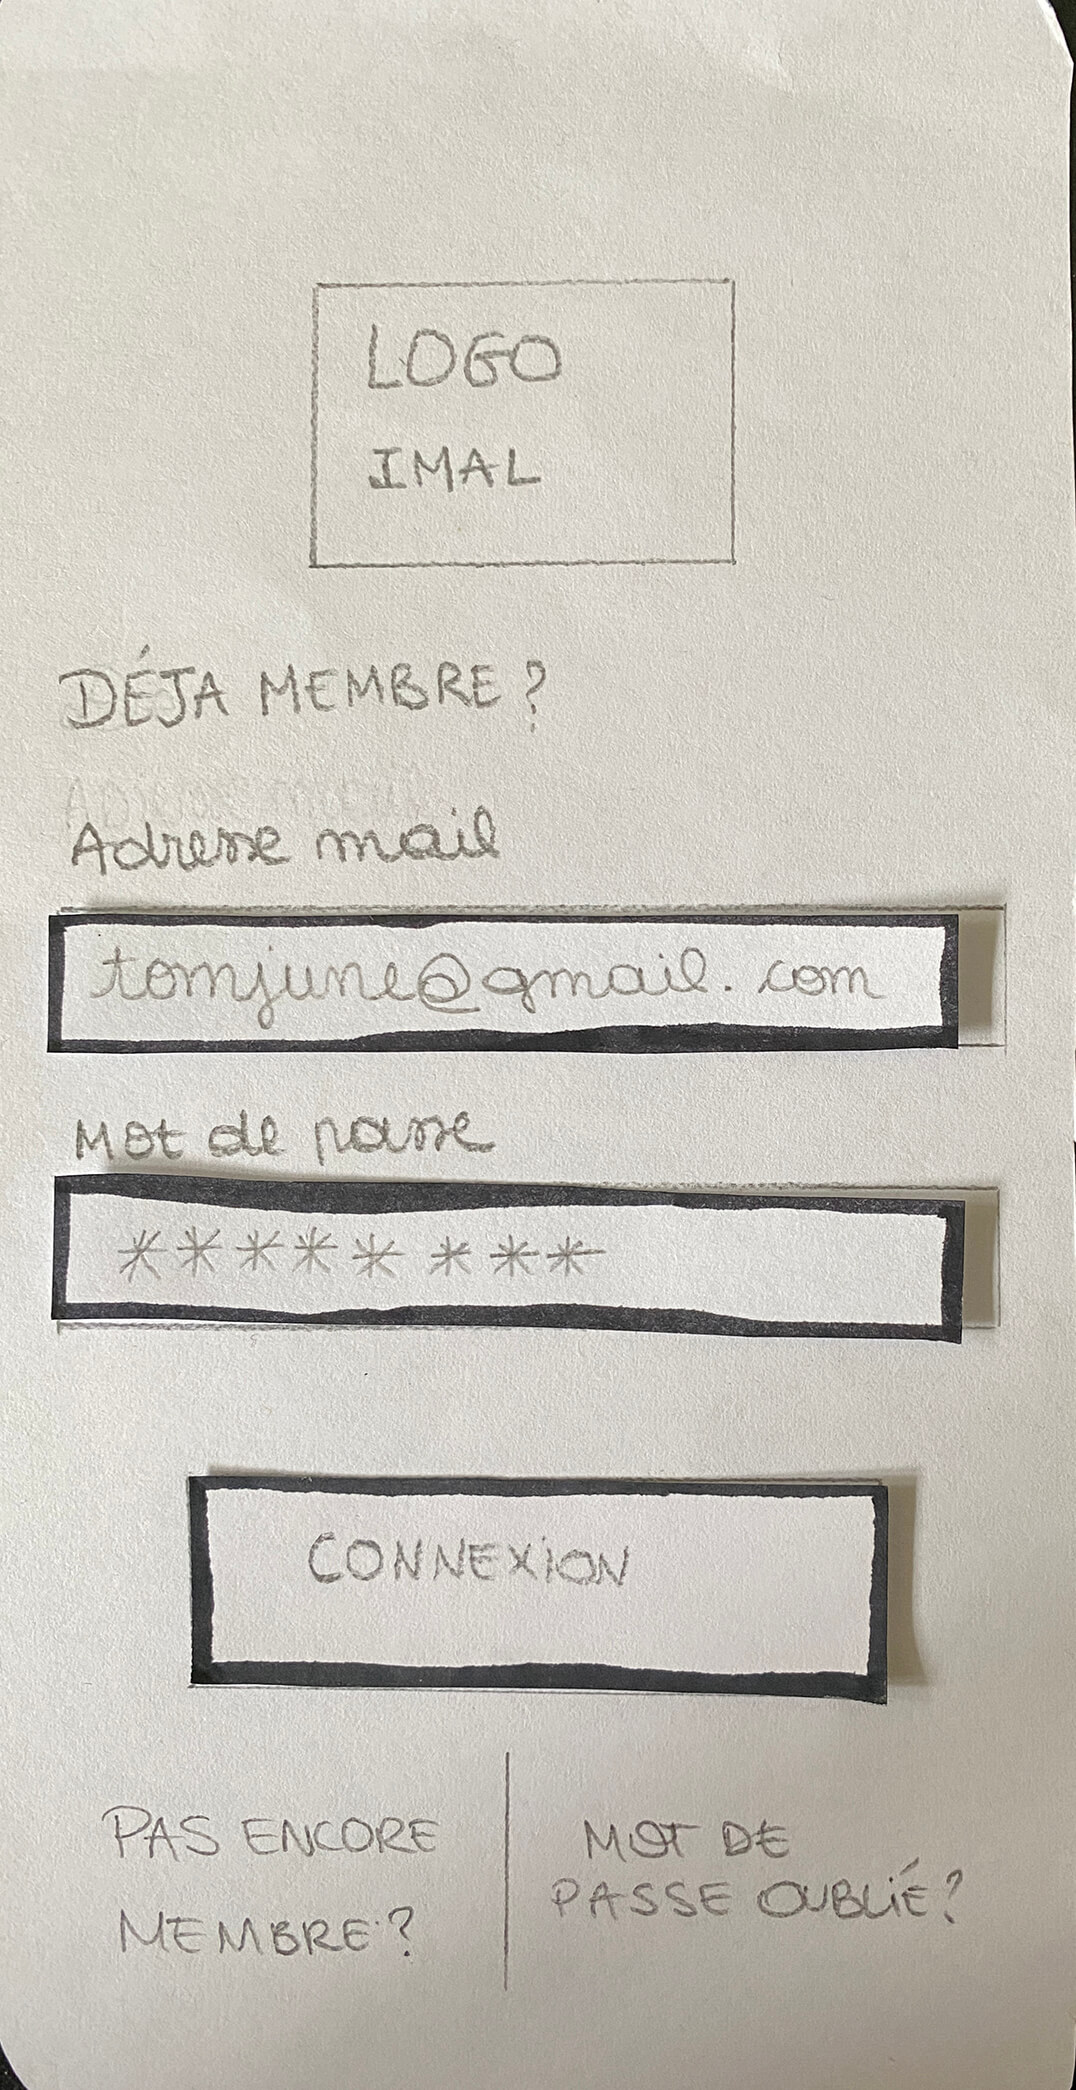 LOGO
IMAL
DÉJA MEMBRE ?
Adresse mail
tomjune@gmail.com
Mot de passe
********
CONNEXION
PAS ENCORE
MEMBRE ?
MOT DE
PASSE OUBLIÉ ?